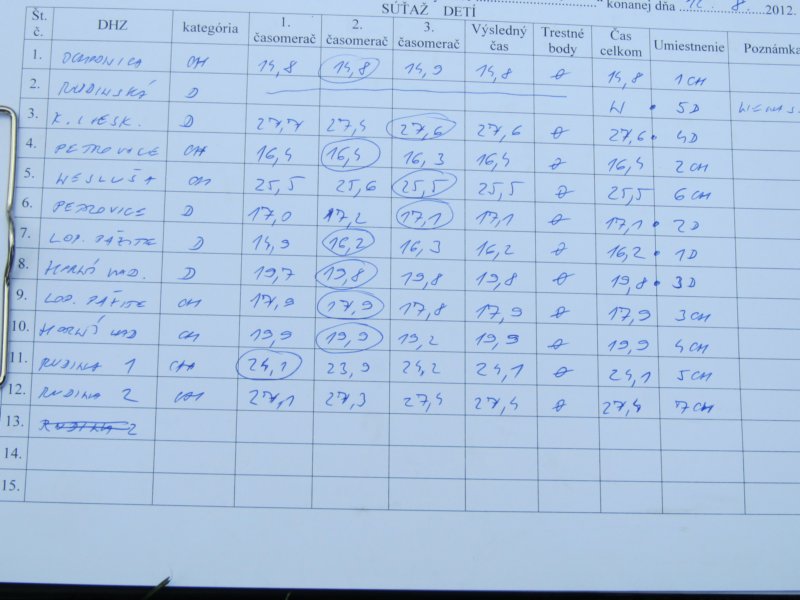 konanej dňa 12. 8. 2012.
SÚŤAŽ DETÍ
Št. č. DHZ kategória 1. časomerač 2. časomerač 3. časomerač Výsledný čas Trestné body Čas celkom Umiestnenie Poznámka
1. OCHODNICA CH 14,8 14,8 14,9 14,8 0 14,8 1 CH
2. RUDINSKÁ D N 5D
3. K. LIESK. D 27,7 27,4 27,6 27,6 0 27,6 4D
4. PETROVICE CH 16,4 16,4 16,3 16,4 0 16,4 2 CH
5. NESLUŠA CH 25,5 25,6 25,5 25,5 0 25,5 6 CH
6. PETROVICE D 17,0 17,2 17,1 17,1 0 17,1 2D
7. LOP. PAŽITE D 14,9 16,2 16,3 16,2 0 16,2 1D
8. HORNÝ VAD. D 19,7 19,8 19,8 19,8 0 19,8 3D
9. LOP. PAŽITE CH 17,9 17,9 17,8 17,9 0 17,9 3 CH
10. HORNÝ VAD CH 19,9 19,9 19,2 19,9 0 19,9 4 CH
11. RUDINA 1 CH 24,1 23,9 24,2 24,1 0 24,1 5 CH
12. RUDINA 2 CH 27,1 27,3 27,4 27,4 0 27,4 7 CH
13. RUDINA 2
14.
15.